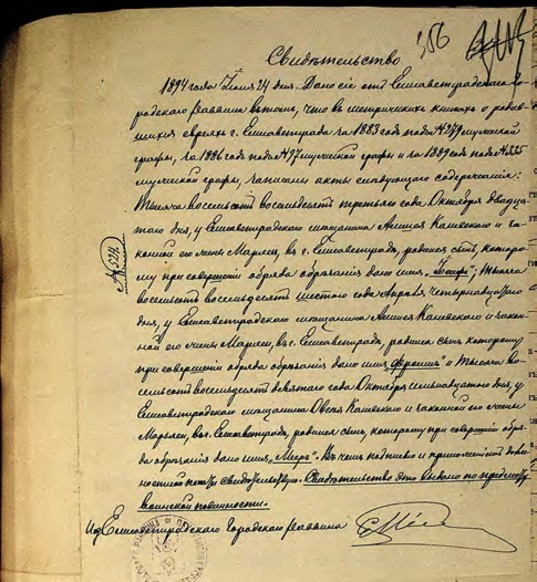 356
Свидѣтельство
1894 года Іюля 24 дня. Дано сіе отъ Елисаветградскаго го-
родскаго Раввина въ томъ, что въ метрическихъ книгахъ о родив-
шихся евреяхъ г. Елисаветграда за 1883 годъ подъ №279 мужеской
графы, за 1886 годъ подъ №97 мужеской графы и за 1889 годъ подъ №235
мужеской графы, записаны акты слѣдующаго содержанія:
Тысяча восемьсотъ восемьдесятъ третьяго года Октября двадца-
таго дня, у Елисаветградскаго мѣщанина Каневскаго и за-
конной его жены Марьеи, въ г. Елисаветградѣ, родился сынъ, которо-
му при совершеніи обряда обрѣзанія дано имя „ "; тысяча
№524.
восемьсотъ восемьдесятъ шестого года Апрѣля четырнадцатаго
дня, у Елисаветградскаго мѣщанина Каневскаго и закон-
ной его жены Марьеи, въ г. Елисаветградѣ, родился сынъ, которому
при совершеніи обряда обрѣзанія дано имя „Фроимъ" и тысяча во-
семьсотъ восемьдесятъ девятаго года Октября семнадцатаго дня, у
Елисаветградскаго мѣщанина Овсея Каневскаго и законной его жены
Марьеи, въ г. Елисаветградѣ, родился сынъ, которому при совершеніи обря-
да обрѣзанія дано имя „Мееръ". Въ чемъ подписью и приложеніемъ долж-
ностной печати свидѣтельствую. Свидѣтельство это выдано по предмету
воинской повинности.
Елисаветградскаго Городскаго Раввина